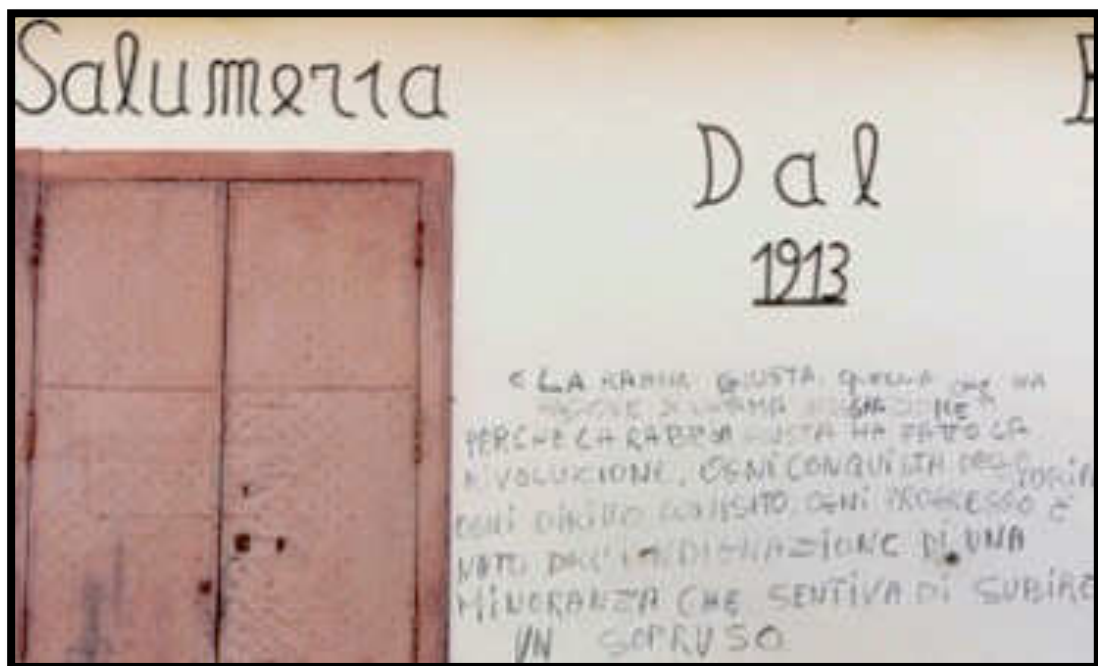 Salumeria
Dal
1913
< LA RABBIA GIUSTA, QUELLA CHE HA
RAGIONE SI CHIAMA INDIGNAZIONE
PERCHE LA RABBIA GIUSTA HA FATTO LA
RIVOLUZIONE, OGNI CONQUISTA DELLA
OGNI DIRITTO ACQUISITO OGNI PROGRESSO È
NATO DALL'INDIGNAZIONE DI UNA
MINORANZA CHE SENTIVA DI SUBIRE
UN SOPRUSO